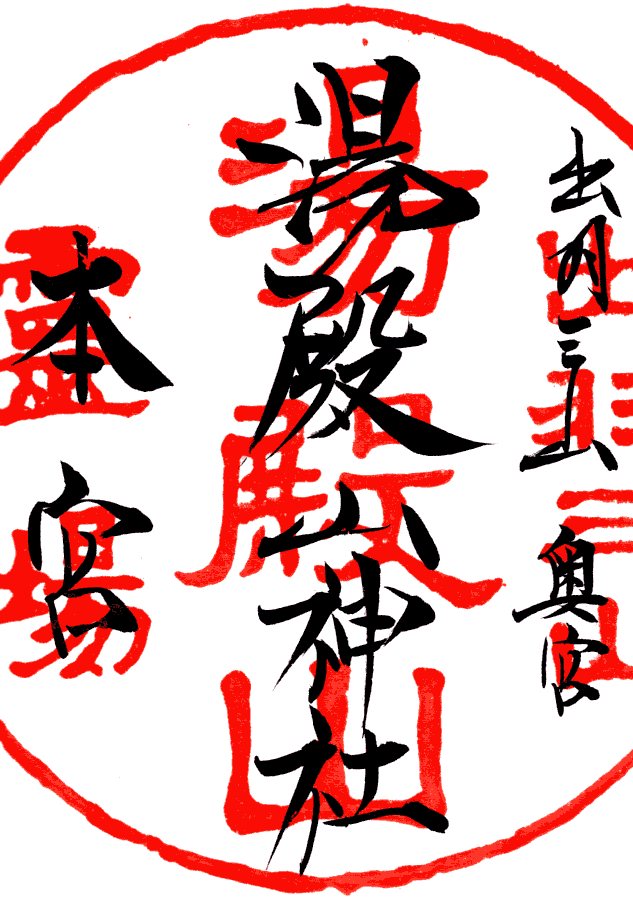 出羽三山 奥宮
湯殿山神社
本宮
出羽三山
湯殿山
霊場